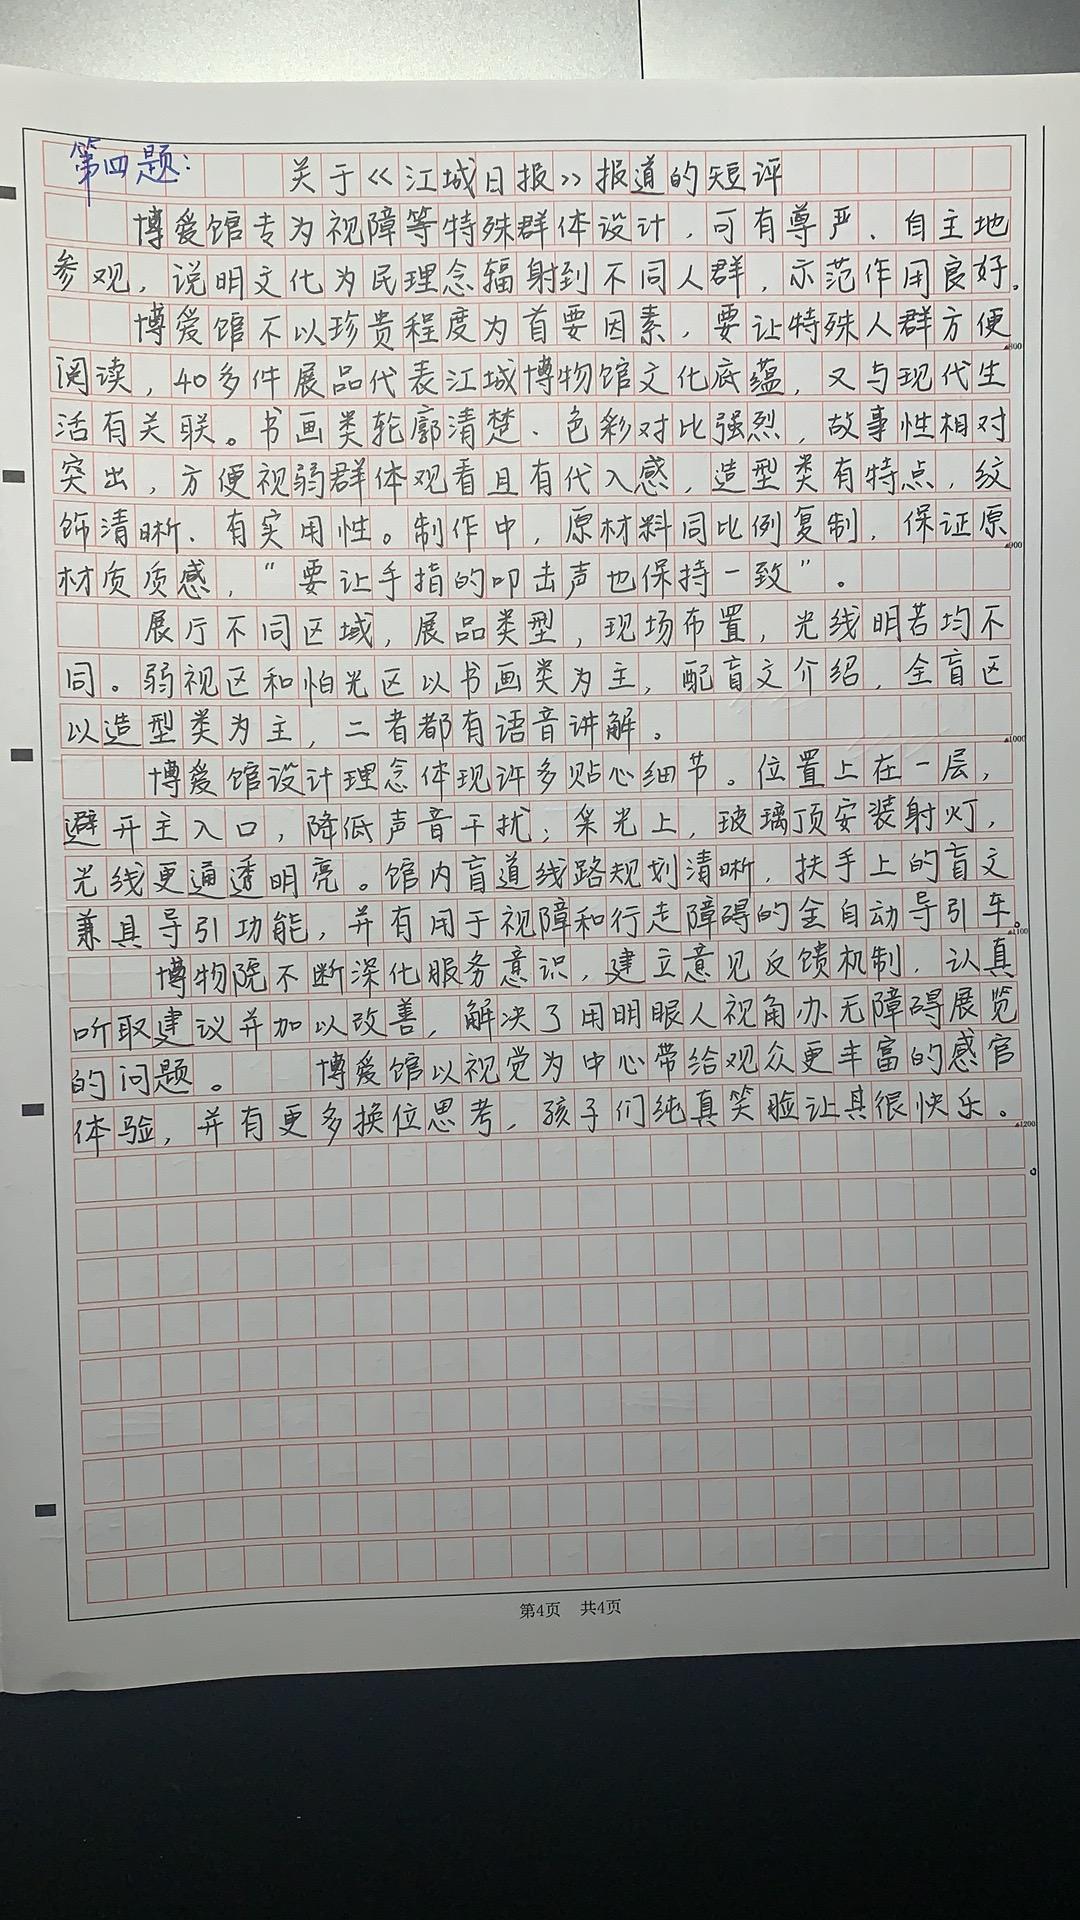 第四题：
关于《江城日报》报道的短评
博爱馆专为视障等特殊群体设计，可有尊严、自主地
参观，说明文化为民理念辐射到不同人群，示范作用良好。
博爱馆不以珍贵程度为首要因素，要让特殊人群方便
800
阅读，40多件展品代表江城博物馆文化底蕴，又与现代生
活有关联。书画类轮廓清楚、色彩对比强烈，故事性相对
突出，方便视弱群体观看且有代入感，造型类有特点，纹
饰清晰、有实用性。制作中，原材料同比例复制，保证原
900
材质质感，“要让手指的叩击声也保持一致”。
展厅不同区域，展品类型，现场布置，光线明若均不
同。弱视区和怕光区以书画类为主，配盲文介绍，全盲区
以造型类为主，二者都有语音讲解。
1000
博爱馆设计理念体现许多贴心细节。位置上在一层，
避开主入口，降低声音干扰；采光上，玻璃顶安装射灯，
光线更通透明亮。馆内盲道线路规划清晰，扶手上的盲文
兼具导引功能，并有用于视障和行走障碍的全自动导引车。
1100
博物院不断深化服务意识，建立意见反馈机制，认真
听取建议并加以改善，解决了用明眼人视角办无障碍展览
的问题。 博爱馆以视觉为中心带给观众更丰富的感官
体验，并有更多换位思考，孩子们纯真笑脸让其很快乐。
1200
第4页 共4页